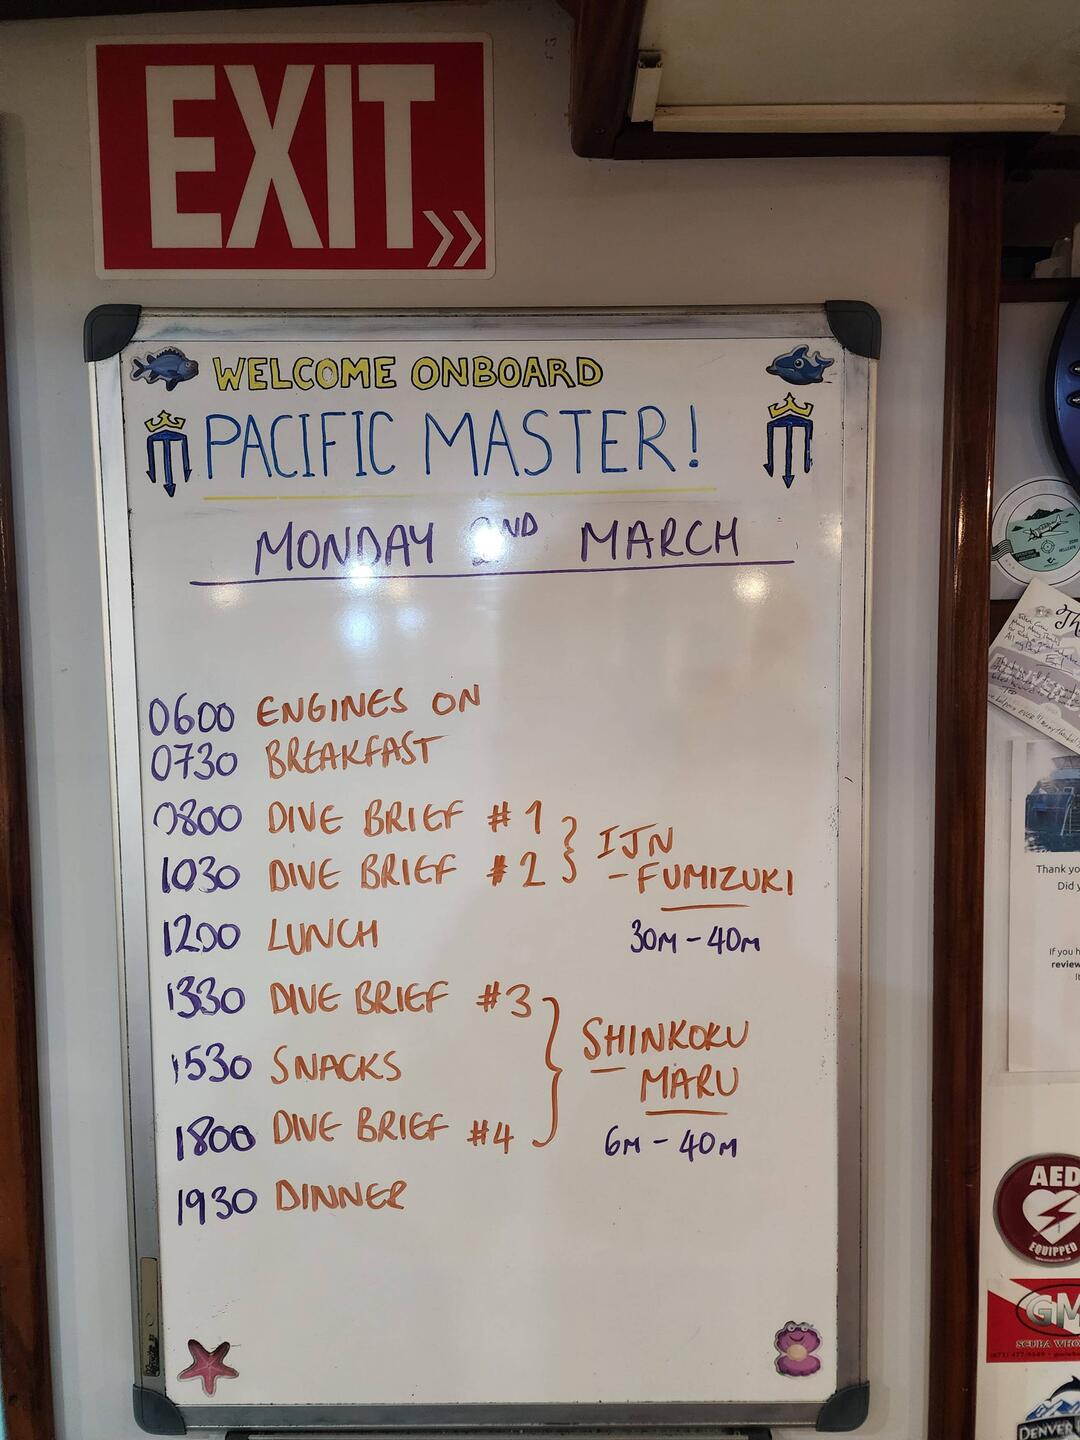 EXIT
WELCOME ONBOARD
PACIFIC MASTER!
MONDAY 2ND MARCH
0600 ENGINES ON
0730 BREAKFAST
0800 DIVE BRIEF #1
1030 DIVE BRIEF #2
IJN
-FUMIZUKI
30M-40M
1200 LUNCH
1330 DIVE BRIEF #3
1530 SNACKS
1800 DIVE BRIEF #4
SHINKOKU
MARU
6M-40M
1930 DINNER
Thank yo
Did y
If you h
review
AED
EQUIPPED
GM
SCUBA WHO
DENVER